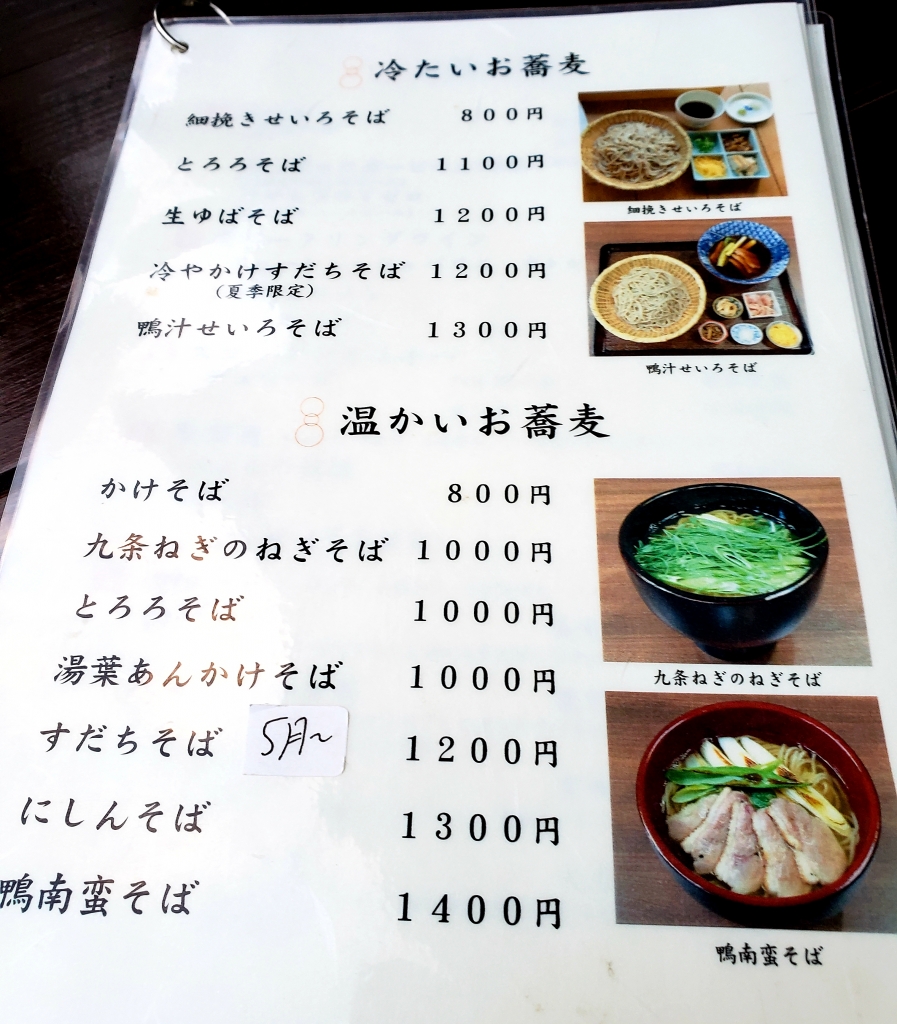 冷たいお蕎麦
細挽きせいろそば 800円
とろろそば 1100円
生ゆばそば 1200円
冷やかけすだちそば 1200円
(夏季限定)
鴨汁せいろそば 1300円
細挽きせいろそば
鴨汁せいろそば
温かいお蕎麦
かけそば 800円
九条ねぎのねぎそば 1000円
とろろそば 1000円
湯葉あんかけそば 1000円
すだちそば 5月〜 1200円
にしんそば 1300円
鴨南蛮そば 1400円
九条ねぎのねぎそば
鴨南蛮そば